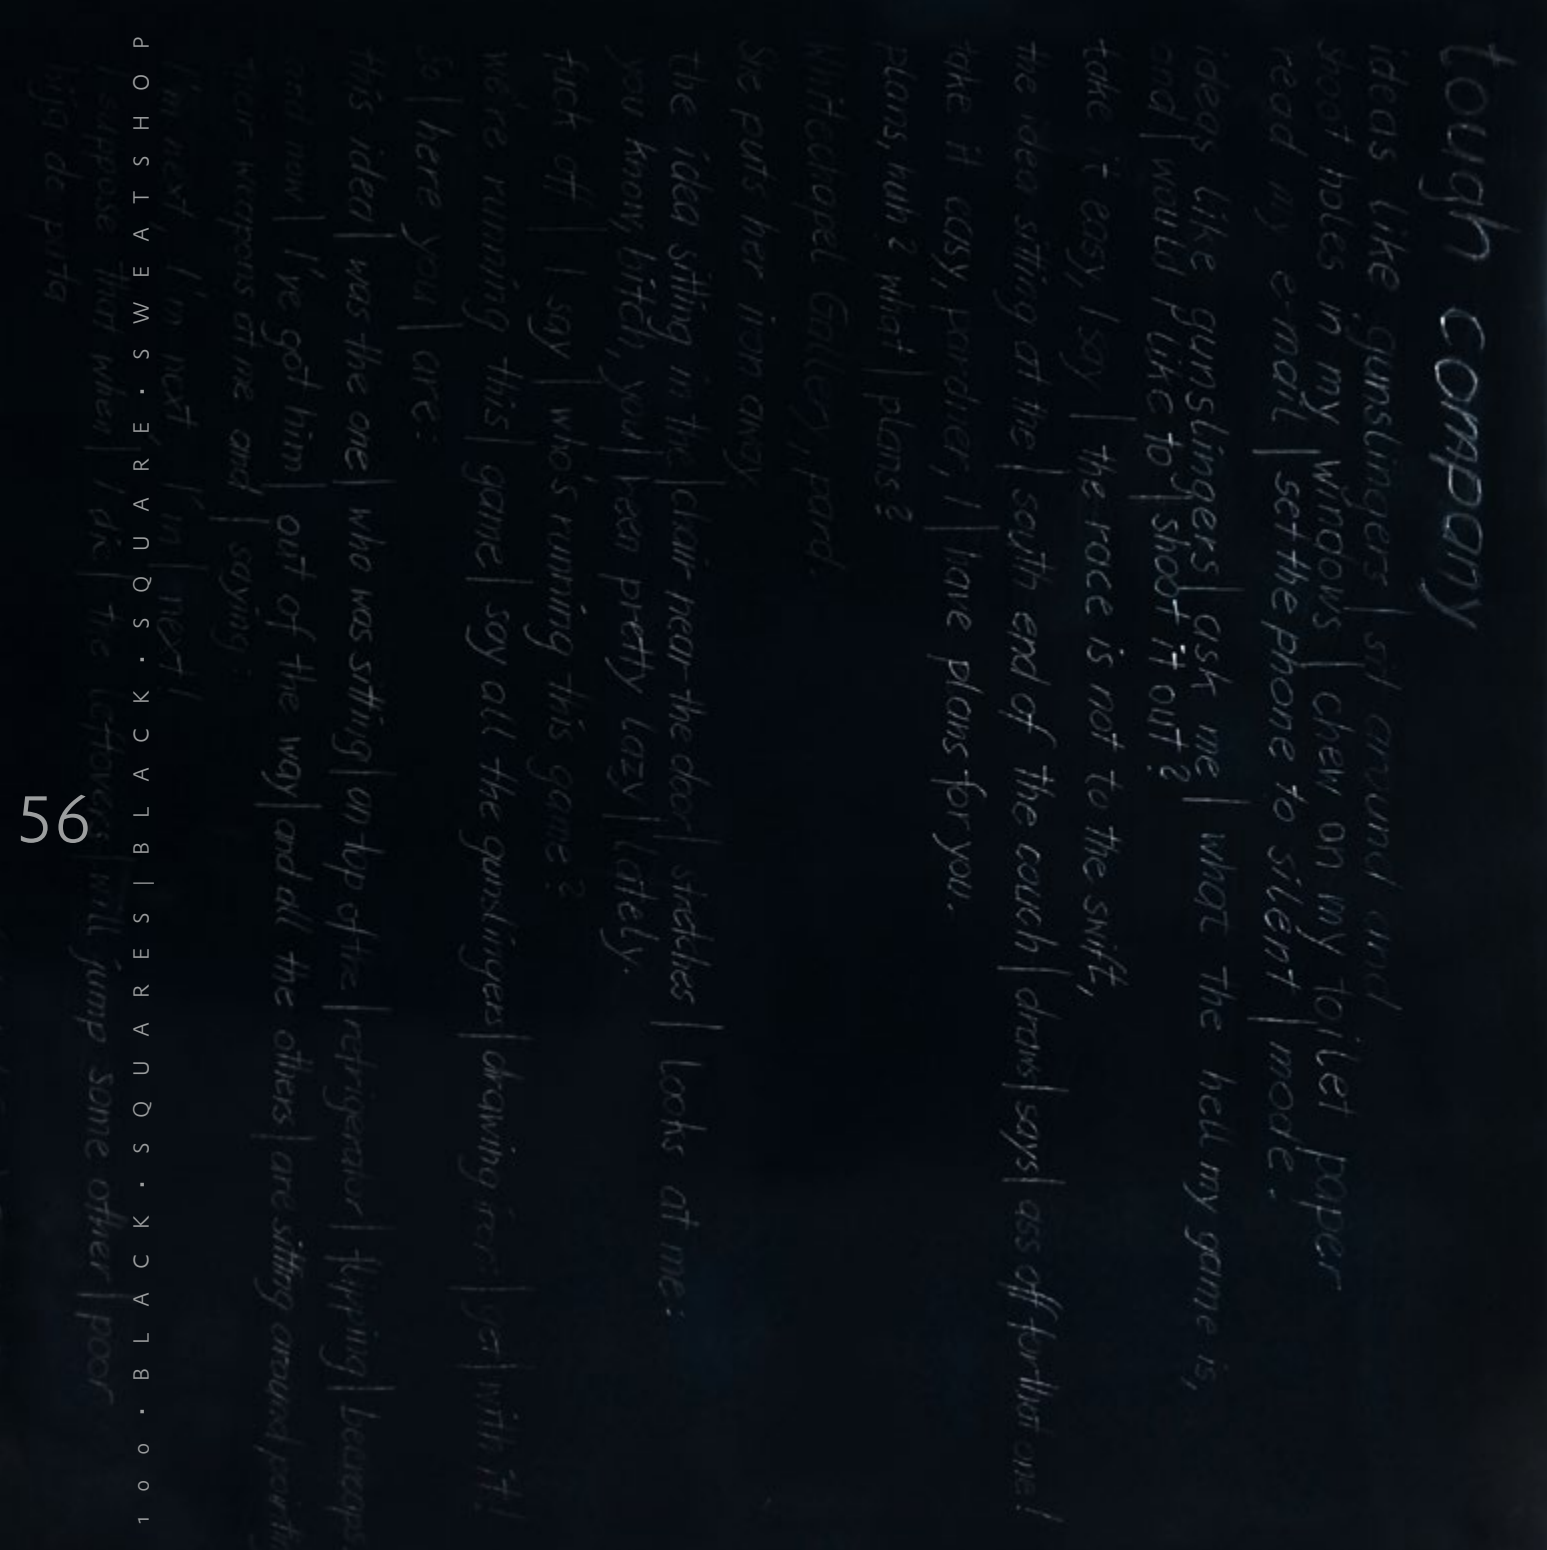 tough company
ideas like gunslingers | sit around and
shoot holes in my windows | chew on my toilet paper
read my e-mail | set the phone to silent | mode.
ideas like gunslingers | ask me | what the hell my game is,
and | would I like to | shoot it out?
take it easy, I say | the race is not to the swift,
the idea sitting at the | south end of the couch | draws | says | ass off for that one!
take it easy, pardner, I | have plans for you.
plans, huh? what | plans?
Whitechapel Gallery, pard.
she puts her iron away
the idea sitting in the | chair near the door | stretches | looks at me:
you know, bitch, you | been pretty lazy | lately.
fuck off | I say | who's running this game?
we're running this | game | say all the gunslingers | drawing iron | with it!
so | here you | are:
this idea | was the one | who was sitting | on top of the | refrigerator | flipping | beercaps.
and now | I've got him | out of the way | and all the others | are sitting around
their weapons at me and | saying:
I'm next! I'm next! I'm | next!
I suppose that when | I die | the | will jump some other | poor
hijo de puta
56
100·BLACK·SQUARES|BLACK·SQUARE·SWEATSHOP